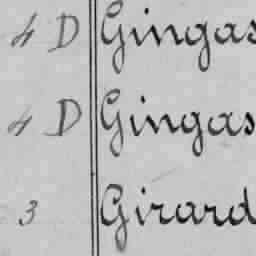 4 D Gingas
4 D Gingas
3 Girard